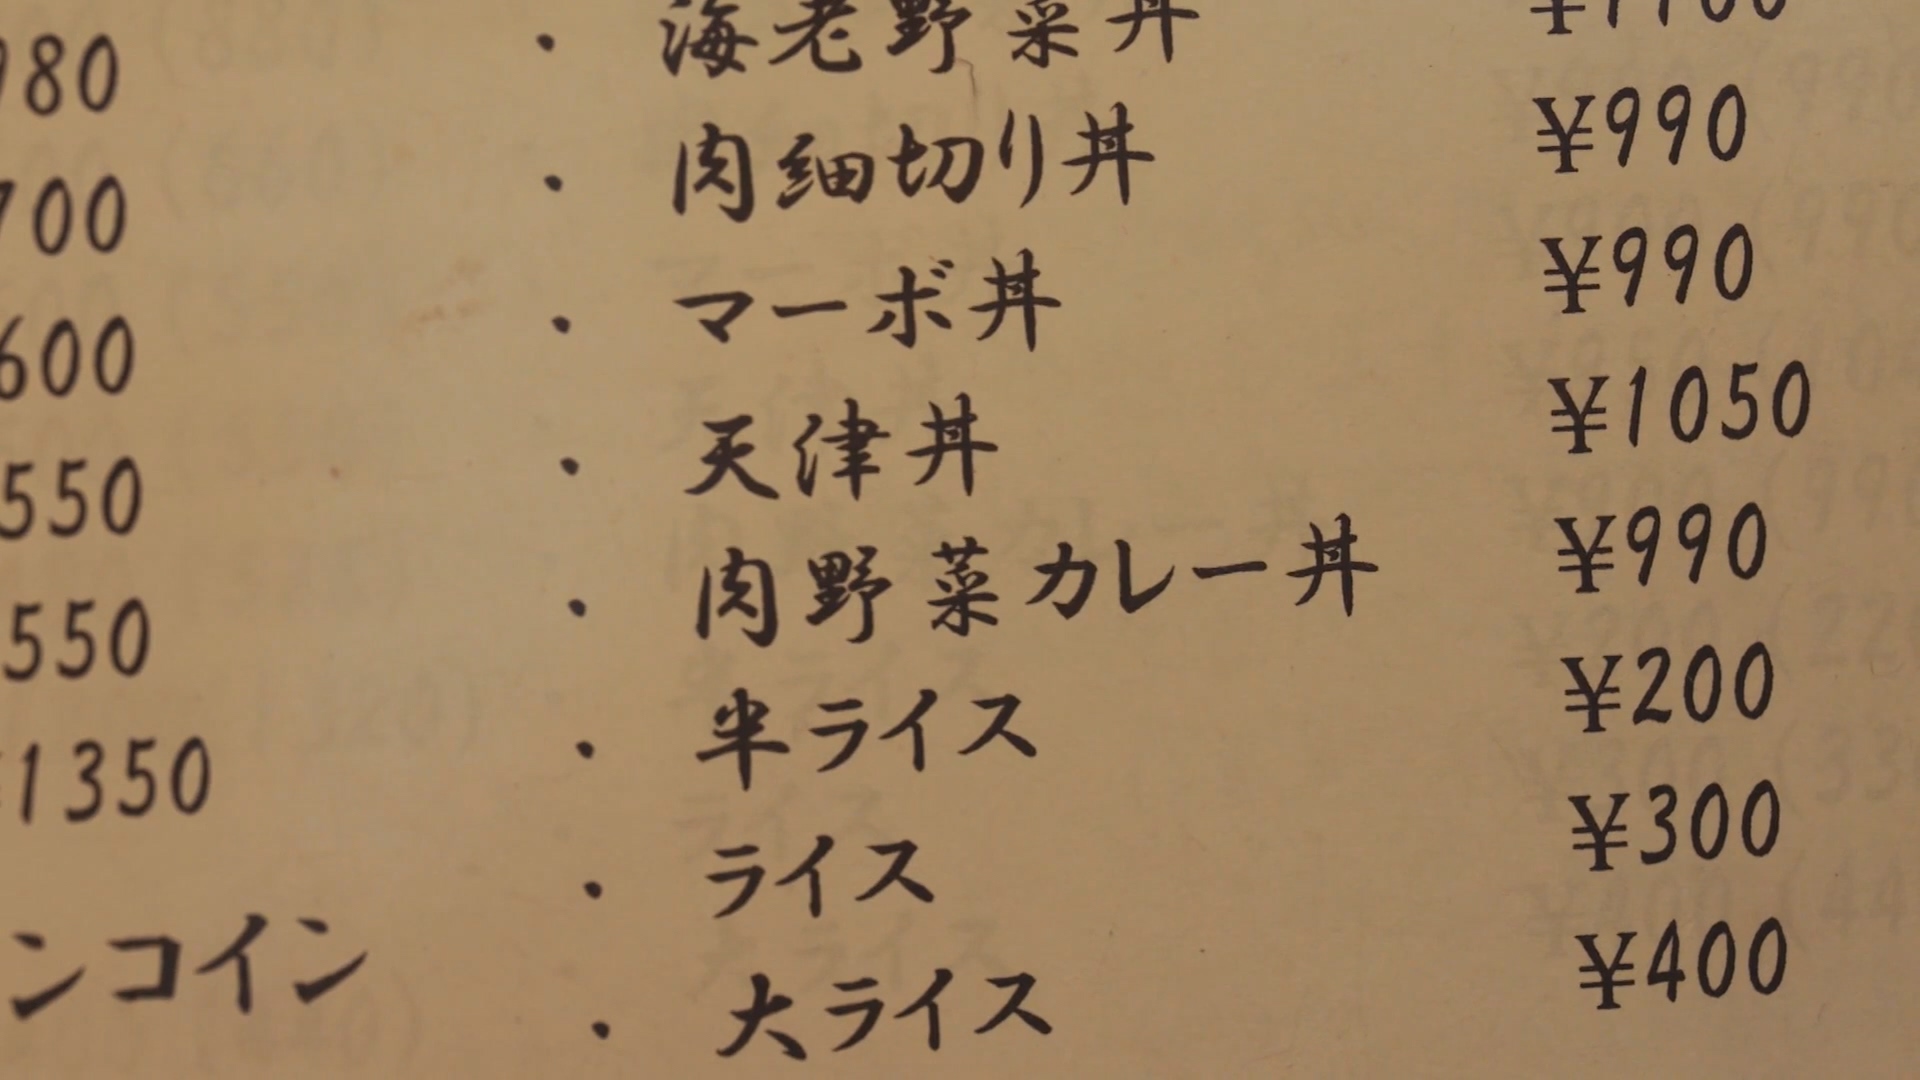 80
700
600
550
550
1350
ンコイン
・ 海老野菜丼 ¥1100
・ 肉細切り丼 ¥990
・ マーボ丼 ¥990
・ 天津丼 ¥1050
・ 肉野菜カレー丼 ¥990
・ 半ライス ¥200
・ ライス ¥300
・ 大ライス ¥400